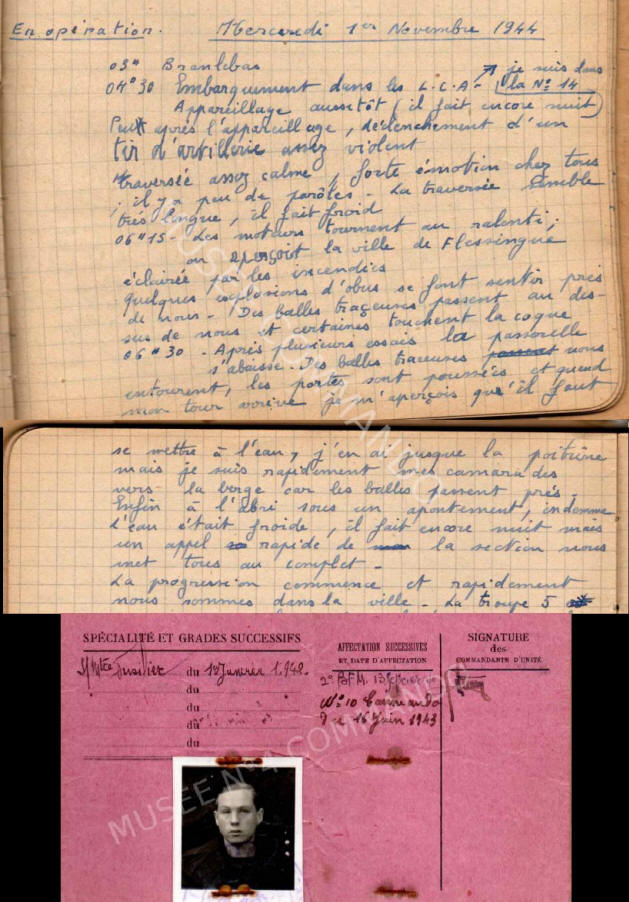 En opération. Mercredi 1er Novembre 1944
03H Branlebas
04H30 Embarquement dans les L.C.A- je suis dans
la N° 14
Appareillage aussitôt (il fait encore nuit)
Peu après l'appareillage, déclenchement d'un
tir d'artillerie assez violent
traversée assez calme, forte émotion chez tous
, il y a peu de parôles - La traversée semble
très longue, il fait froid
06H15 - Les moteurs tournent au ralenti;
on aperçoit la ville de Flessingue
éclairée par les incendies
quelques explosions d'obus se font sentir près
de nous - Des balles traçeuses passent au des-
sus de nous et certaines touchent la coque
06H30 - Après plusieurs essais la passerelle
s'abaisse. Des balles traceuses passent nous
entourent, les portes sont poussées et quand
mon tour arrive je m'aperçois qu'il faut
se mettre à l'eau, j'en ai jusque la poitrine
mais je suis rapidement mes camarades
vers la berge car les balles passent près.
Enfin à l'abri sous un apontement, indemne
L'eau était froide, il fait encore nuit mais
un appel rapide de la section nous
met tous au complet -
La progression commence et rapidement
nous sommes dans la ville - La troupe 5
SPÉCIALITÉ ET GRADES SUCCESSIFS
AFFECTATION SUCCESSIVES
ET DATE D'AFFECTATION
SIGNATURE
des
COMMANDANTS D'UNITÉ
fusilier du 1er Janvier 1942
du
du
du
du
N° 10 Commando
16 Juin 1943
MUSEE N°4 COMMANDO